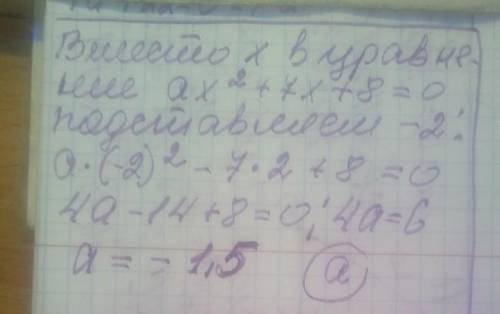 Вместо х в уравне-
ние ах² + 7х + 8 = 0
подставляем -2:
а·(-2)² - 7·2 + 8 = 0
4а - 14 + 8 = 0; 4а = 6
а = - 1,5 а